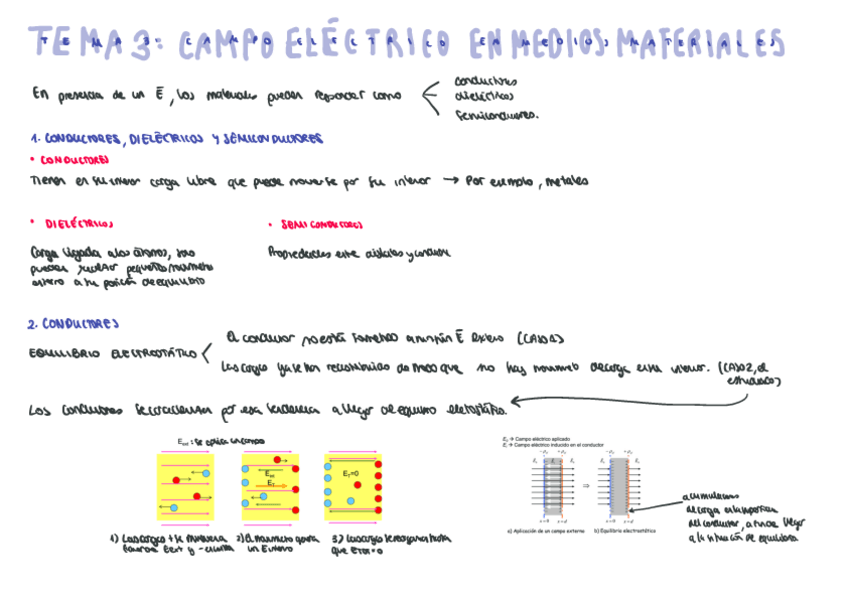 TEMA 3: CAMPO ELÉCTRICO EN MEDIOS MATERIALES
En presencia de un E, los materiales pueden responder como
conductores
dieléctricos
semiconductores.
1. CONDUCTORES, DIELÉCTRICOS Y SEMICONDUCTORES
• CONDUCTORES
Tienen en su interior carga libre que puede moverse por su interior → Por ejemplo, metales
• DIELÉCTRICOS
Carga ligada a los átomos, solo
pueden realizar pequeños movimientos
entorno a su posición de equilibrio
• SEMICONDUCTORES
Propiedades entre aislantes y conductores
2. CONDUCTORES
EQUILIBRIO ELECTROSTÁTICO
El conductor no está sometido a ningún E externo (CASO 1)
Las cargas ya se han redistribuido de modo que no hay movimiento de carga en su interior. (CASO 2, el
estudiado)
Los conductores se caracterizan por esa tendencia a llegar al equilibrio electrostático.
Eext : se aplica un campo
Eext
ET
ET=0
1) Las cargas + se mueven a
favor de Eext y - en contra
2) El movimiento genera
un E interno
3) Las cargas se reorganizan hasta
que ETOT=0
E0 → Campo eléctrico aplicado
Ei → Campo eléctrico inducido en el conductor
a) Aplicación de un campo externo
b) Equilibrio electrostático
acumulaciones
de carga en la superficie
del conductor, al llegar
a la situación de equilibrio